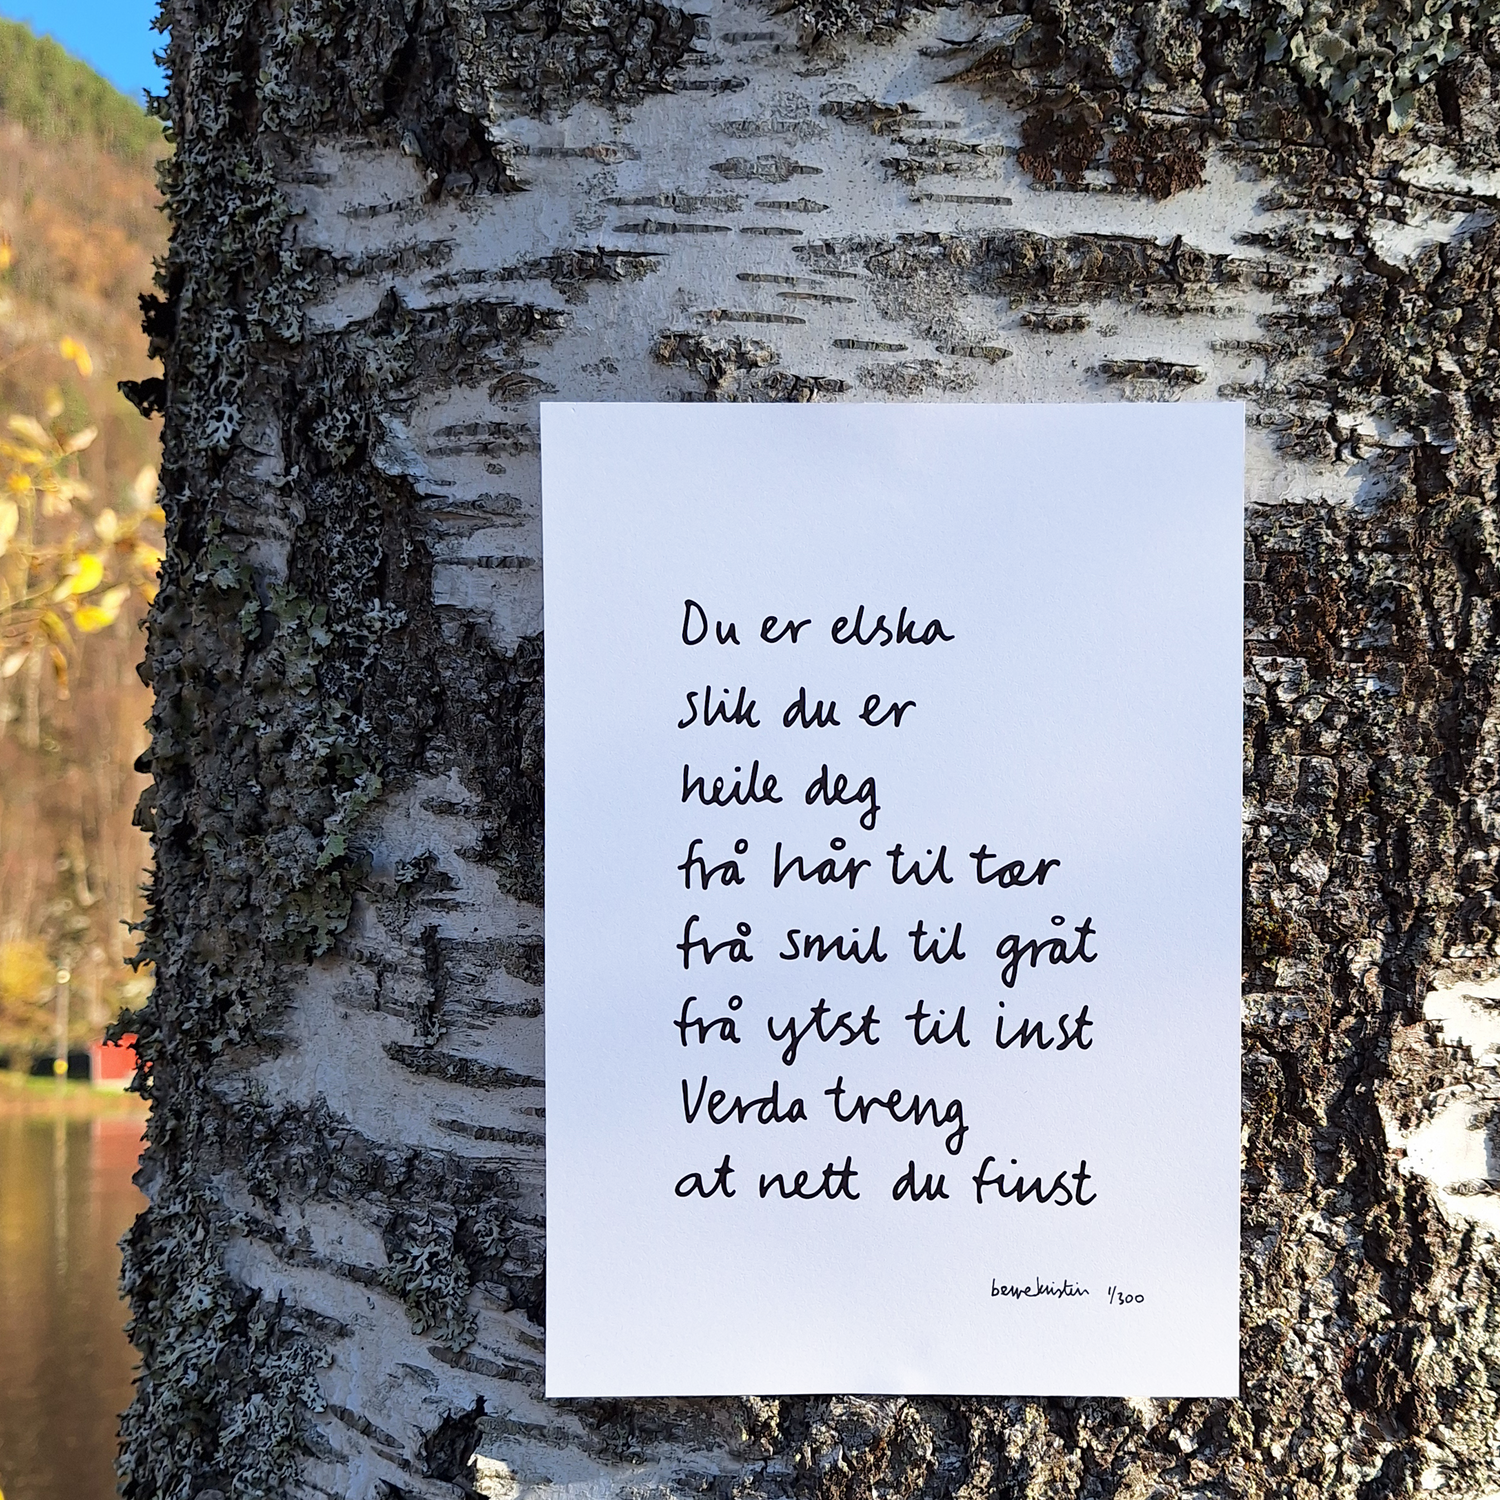 Du er elska
slik du er
heile deg
frå hår til tær
frå smil til gråt
frå ytst til inst
Verda treng
at nett du finst
1/300